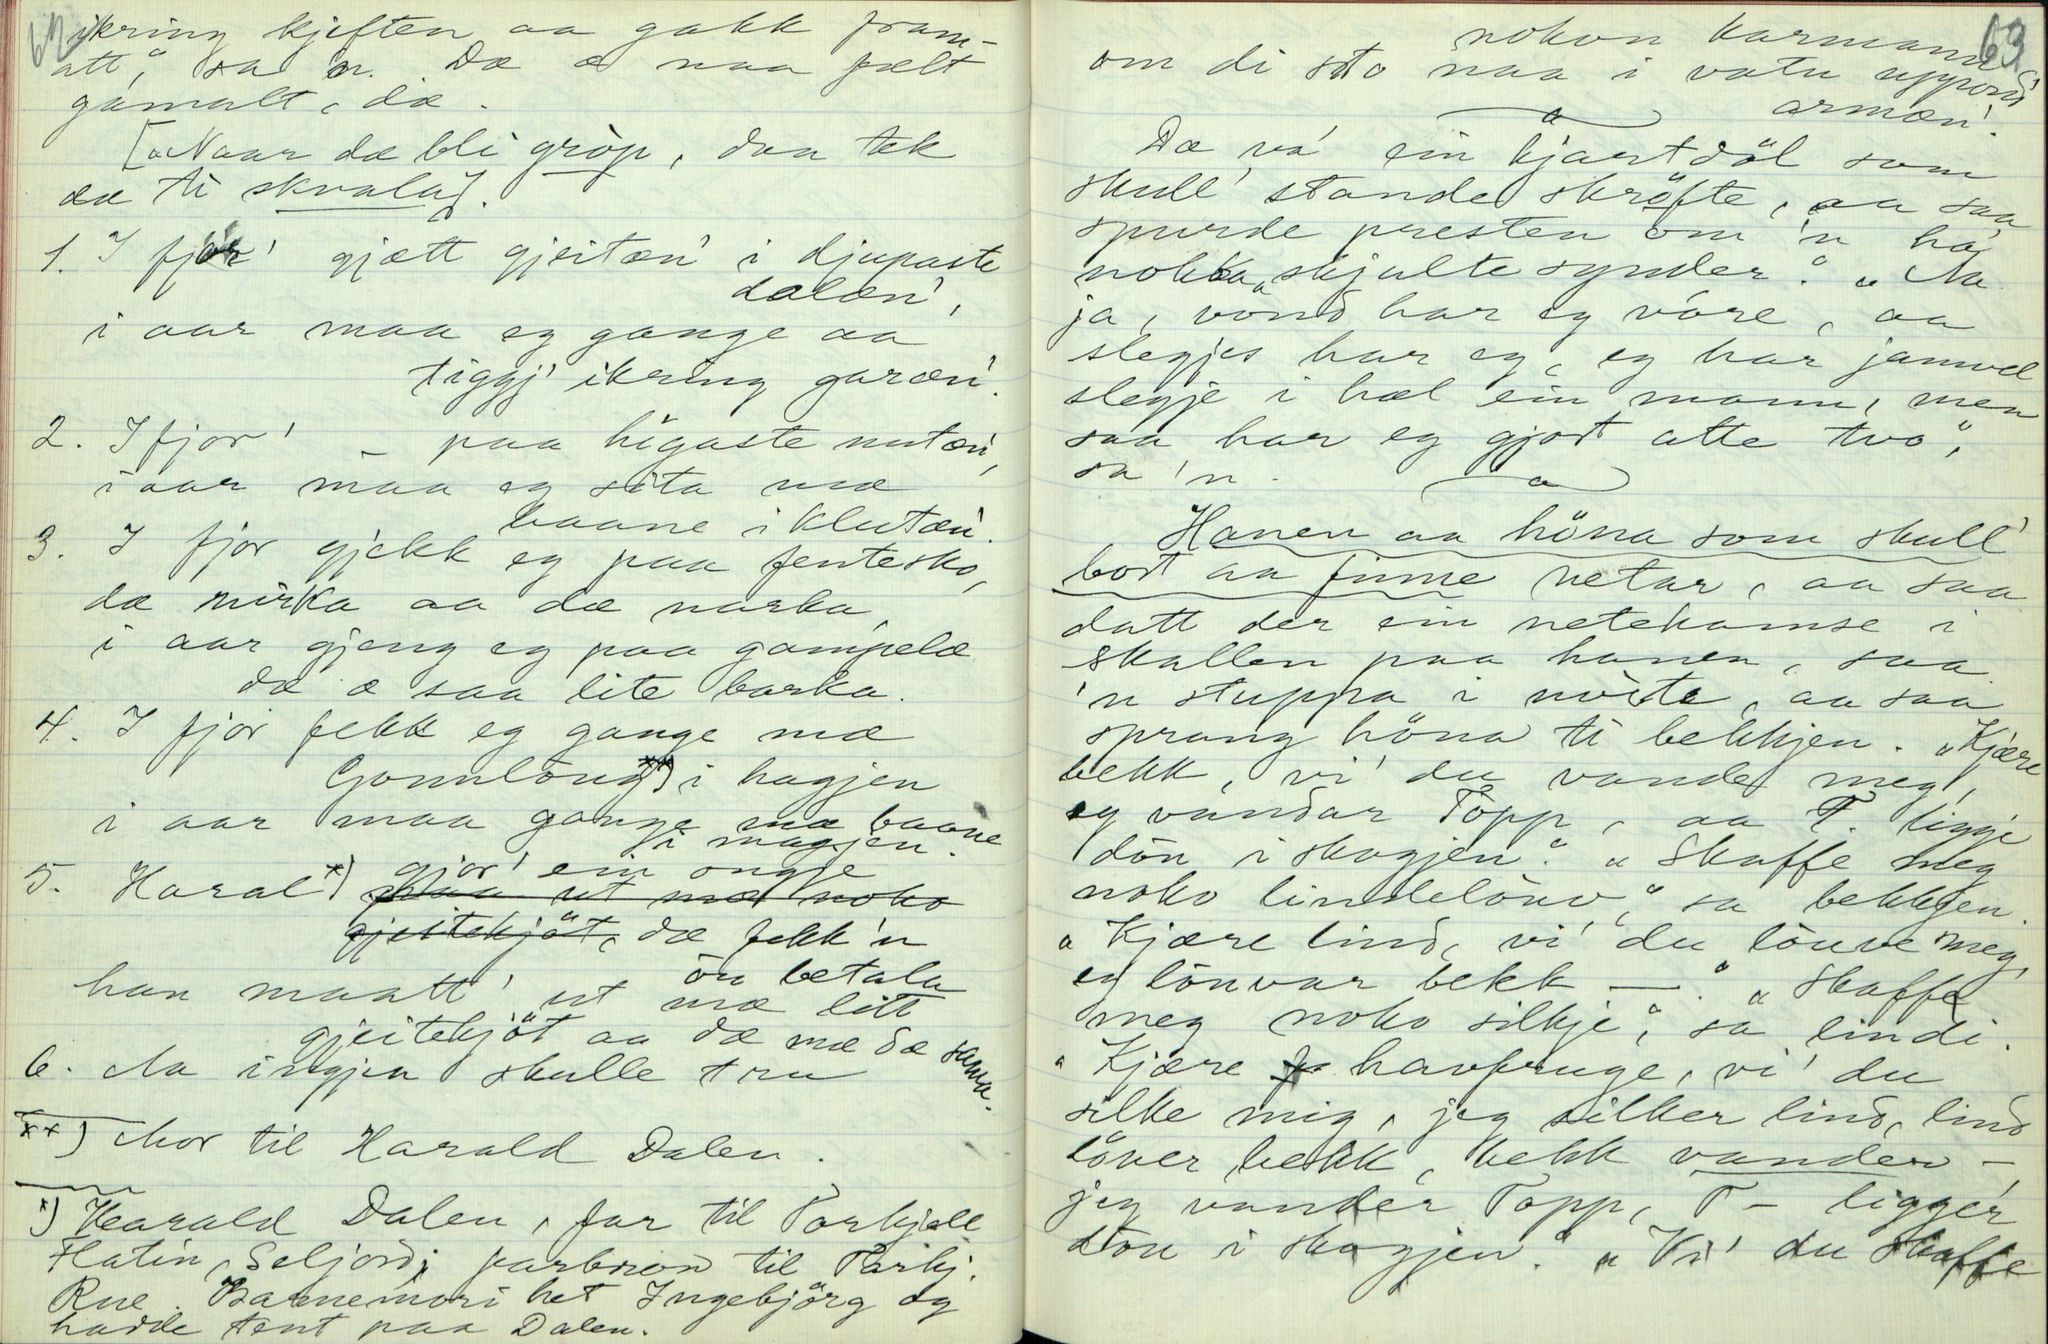 62
ikring kjeften aa gakk fram-
att", sa 'n. Dæ æ naa fælt
gamalt, dæ.
["Naar dæ bli gröp, daa tek
dæ ti skvala].
1. I fjor' gjætt gjeitæn' i djupaste
dalæn',
i aar maa eg gange aa
tiggj' ikring garæn'.
2. I fjor' — paa högaste nutæn',
i aar maa eg sita mæ
baane i klutæn'.
3. I fjor gjekk eg paa fentesko,
dæ mirka aa dæ narka,
i aar gjeng eg paa gampelæ
dæ æ saa lite barka.
4. I fjor fekk eg gange mæ
Gonnlöug **) i hagjen
i aar maa gange mæ baane
i magjen.
5. Haral *) gjor' ein ongje
maa ut mæ noko
gjeitekjöt, dæ fekk 'n
ön betala
han maatt' ut mæ litt
gjeitekjöt aa dæ mæ dæ sama.
6. Aa ingjen skulle tru
**) Mor til Harald Dalen.
*) Harald Dalen, far til Torkjell
Flatin, Seljord; farbror til Torkj.
Rue. Barnemori het Ingebjörg og
hadde tent paa Dalen.
63
nokon karmann
om di sto naa i vatn uppond'
armæn'.
Dæ va' ein kjartdöl som
skull' stande skröfte, aa saa
spurde presten om 'n ha'
nokka "skjulte synder". "Aa
ja, vond har eg vore, aa
slegjes har eg, eg har jamvel
slegje i hæl ein mann, men
saa har eg gjort atte tvo",
sa 'n.
Hanen aa höna som skull'
bort aa finne netar, aa saa
datt der ein netekamse i
skallen paa hanen, saa
'n stuppa i növte, aa saa
sprang höna ti bekkjen. "Kjære
bekk, vi' du vande meg,
eg vandar Topp, aa T. ligge
dön i skogjen." "Skaffe meg
noko lindelöuv," sa bekkjen.
"Kjære lind, vi' du löuve meg,
eg löuvar bekk —." "Skaffe
meg noko silkje", sa lindi.
"Kjære havfruge, vi' du
silke mig, jeg silker lind, lind
löver bekk, bekk vander —
jeg vander Topp, T — ligger
dön i skogjen." "Vi' du skaffe